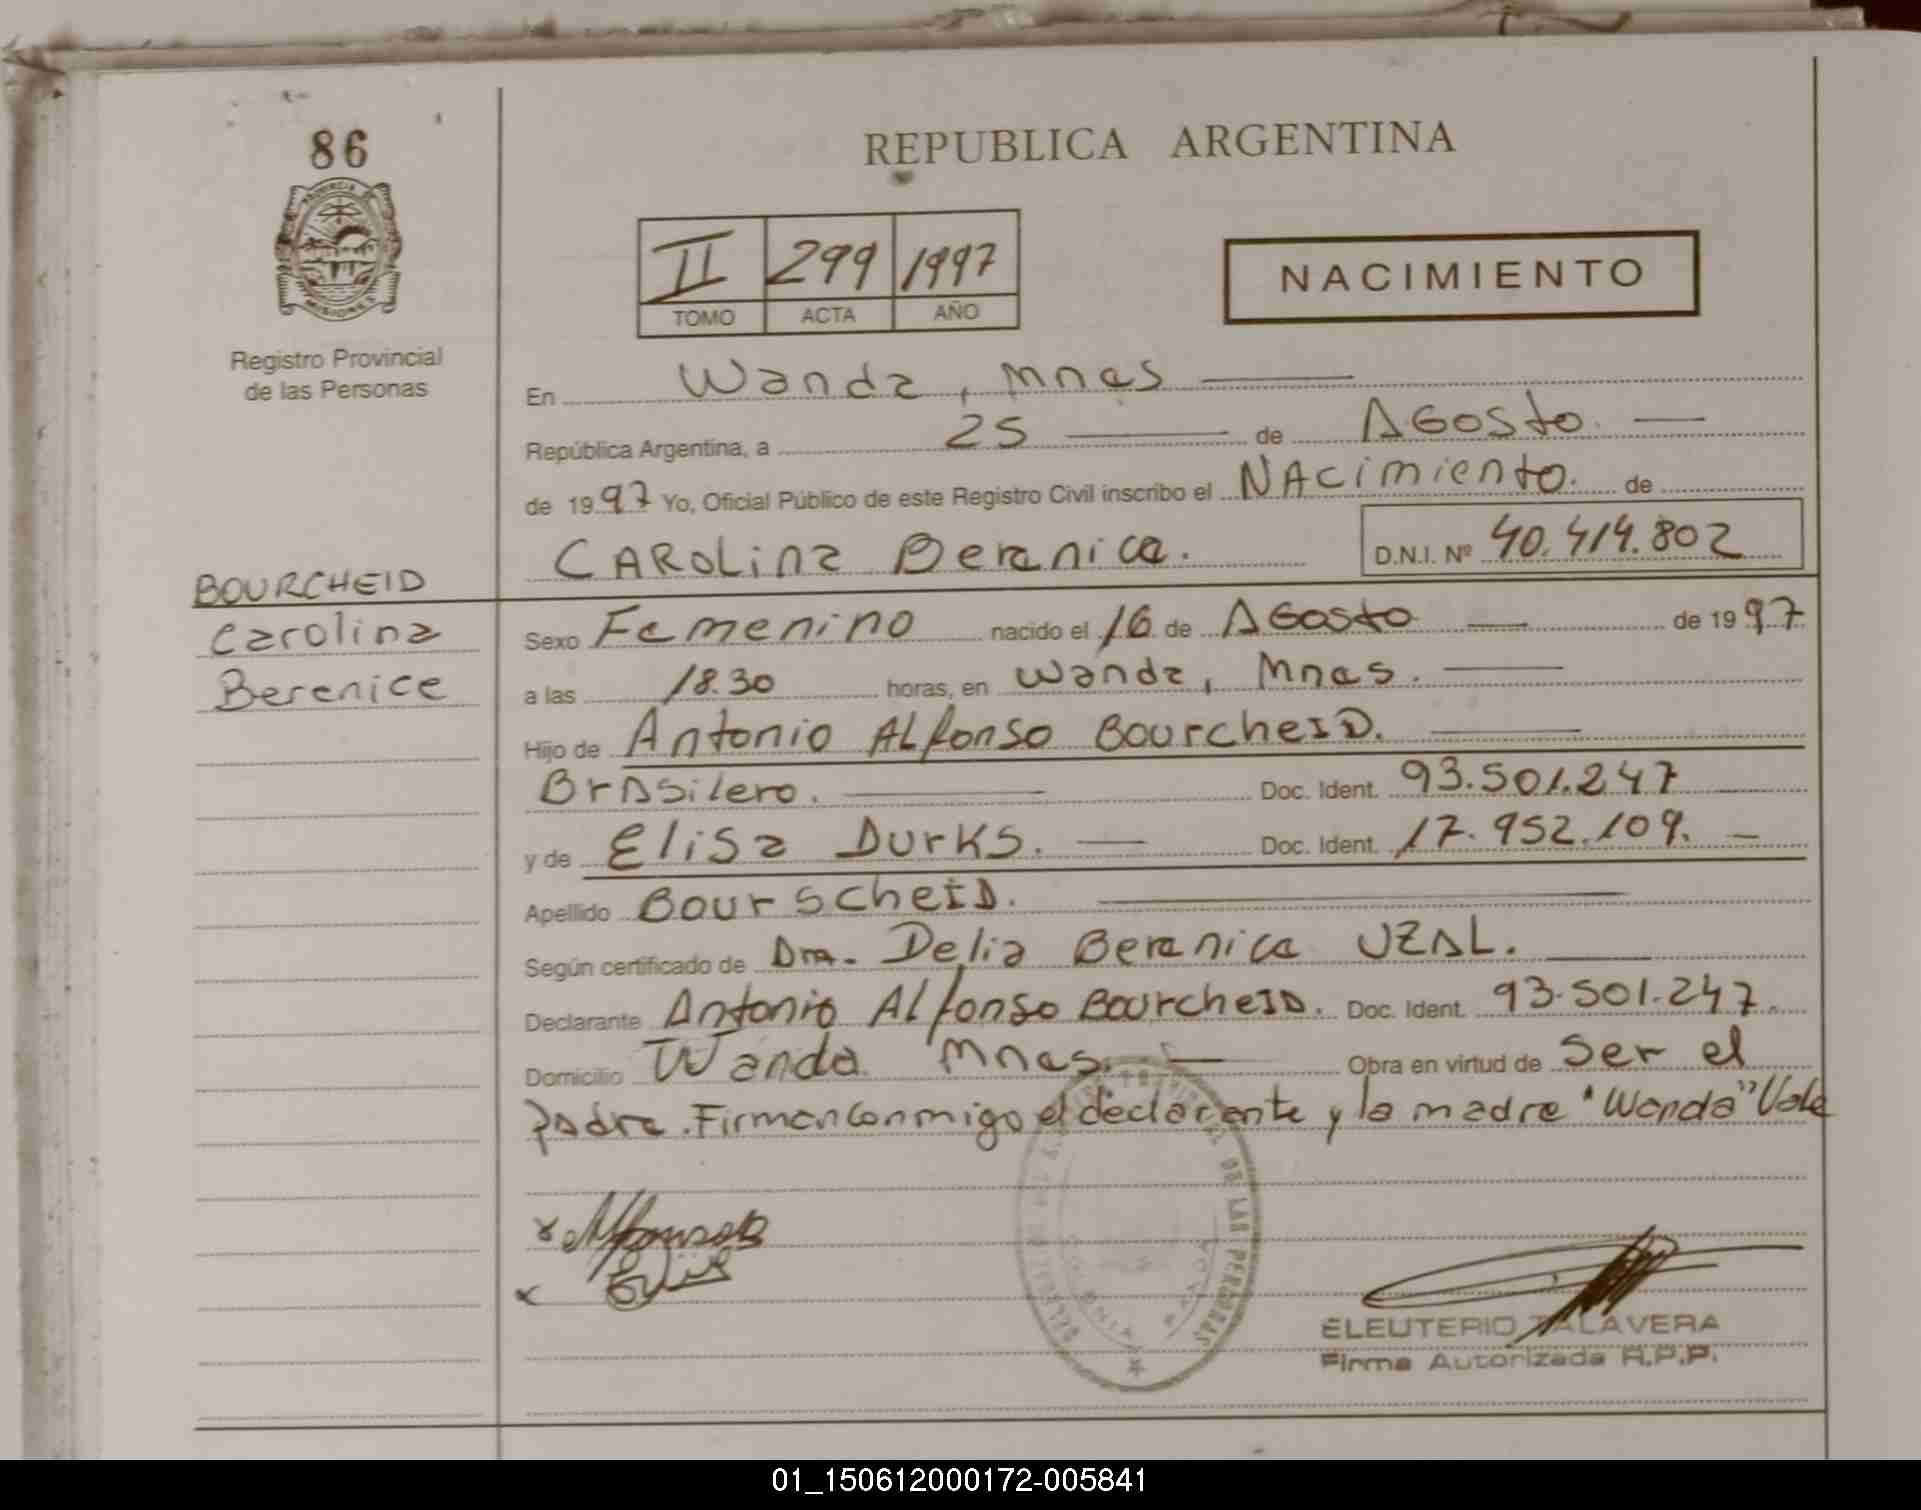 86
PROVINCIA DE
MISIONES
Registro Provincial
de las Personas
REPUBLICA ARGENTINA
II 299 1997
TOMO ACTA AÑO
NACIMIENTO
En Wanda, Mnes
República Argentina, a 25 de Agosto.
de 1997 Yo, Oficial Público de este Registro Civil inscribo el Nacimiento. de
Carolina Berenice. D.N.I. Nº 40.414.802
BOURCHEID
Carolina
Berenice
Sexo Femenino nacido el 16 de Agosto de 1997
a las 18.30 horas, en Wanda, Mnes.
Hijo de Antonio Alfonso Bourcheid.
Brasilero. Doc. Ident. 93.501.247
y de Elisa Durks. Doc. Ident. 17.952.109.
Apellido Bourscheid.
Según certificado de Dra. Delia Berenice UZAL.
Declarante Antonio Alfonso Bourcheid. Doc. Ident. 93.501.247.
Domicilio Wanda Mnes. Obra en virtud de Ser el
padre. Firman conmigo el declarante y la madre "Wanda" Vale
DE LAS PERSONAS
ELEUTERIO TALAVERA
Firma Autorizada R.P.P.
01_150612000172-005841